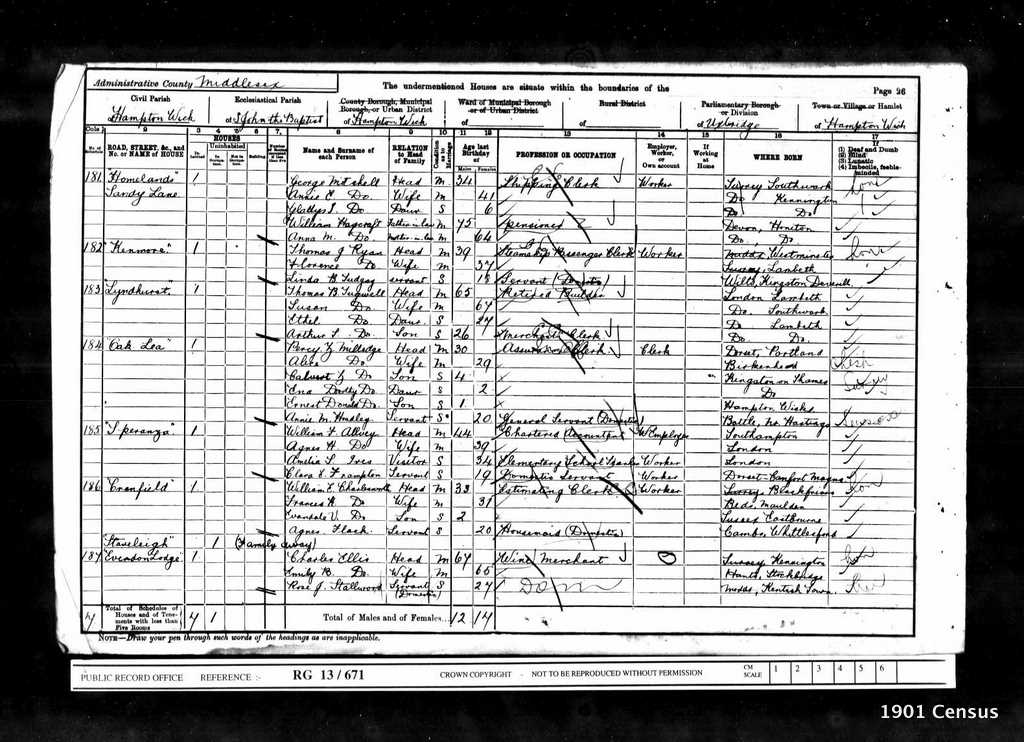 Administrative County Middlesex
The undermentioned Houses are situate within the boundaries of the
Page 26
Civil Parish
Ecclesiastical Parish
County Borough, Municipal Borough, or Urban District
Ward of Municipal Borough or of Urban District
Rural District
Parliamentary Borough or Division
Town or Village or Hamlet
of Hampton Wick
of St John the Baptist
of Hampton Wick
of
of
of Uxbridge
of Hampton Wick
ROAD, STREET, &c., and No. or NAME of HOUSE
HOUSES
Uninhabited
Name and Surname of each Person
RELATION to Head of Family
Condition as to Marriage
Age last Birthday of
Males Females
PROFESSION OR OCCUPATION
Employer, Worker, or Own account
If Working at Home
WHERE BORN
If (1) Deaf and Dumb (2) Blind (3) Lunatic (4) Imbecile, feeble-minded
181 "Homelands" 1 George Mitchell Head M 34 Shipping Clerk Worker Surrey Southwark
Sandy Lane Annie C Do. Wife M 41 Do Kennington
Gladys I. Do Daur S 6 Do Do
William Haycroft Father in law M 75 Pensioner Devon, Honiton
Anna M. Do Mother in law M 64 Do. Do
182 "Kenmore" 1 Thomas J Ryan Head M 39 Steamship Passenger Clerk Worker Middx Westminster
Florence Do Wife M 37 Lambeth
Linda B. servant S 18 Servant (Domestic) Wilts, Kingston Deverill
183 "Lyndhurst" 1 Thomas B. Tugwell Head M 65 Retired Builder London Lambeth
Susan Do Wife M 67 Do. Southwark
Ethel Do Daur. S 27 Do Lambeth
Arthur L. Do. Son S 26 Clerk Do Do.
184 "Oak Lea" 1 Percy Head M 30 Assurance Clerk Clerk Dorset, Portland
Alice Do Wife M 29 Birkenhead
Calvert Do Son S 4 Kingston on Thames
Ena Do Daur S 2 Do
Ernest Donald Do. Son S 1 Hampton Wick
Annie M. Hadley Servant S 20 General Servant (Domestic) Battle, Nr. Hastings
185 "Speranza" 1 William F. Allvey Head M 44 Chartered Accountant Employer Southampton
Agnes H. Do Wife M 39 London
Amelia S. Ives Visitor S 34 Elementary School Teacher Worker London
Clara E. Frampton Servant S 19 Domestic Servant Worker Dorset
186 "Cranfield" 1 William E. Charlesworth Head M 33 Estimating Clerk Worker Surrey Blackfriars
Frances K. Do Wife M 31 Beds. Maulden
Do Son S 2 Sussex Eastbourne
Agnes Flack Servant S 20 Housemaid (Domestic) Cambs. Whittlesford
"Staveleigh" 1 (Family away)
187 Evendon Lodge 1 Charles Ellis Head M 67 Wine Merchant Surrey Kennington
Emily B. Do. Wife M 65 Hants, Stockbridge
Rose J. Stallwood Servant (Domestic) S 27 Dom Middx, Kentish Town
7 Total of Schedules of Houses and of Tenements with less than Five Rooms 7 1 Total of Males and of Females... 12 17
NOTE—Draw your pen through such words of the headings as are inapplicable.
PUBLIC RECORD OFFICE REFERENCE :- RG 13/671 CROWN COPYRIGHT - NOT TO BE REPRODUCED WITHOUT PERMISSION CM SCALE 1 2 3 4 5 6
1901 Census